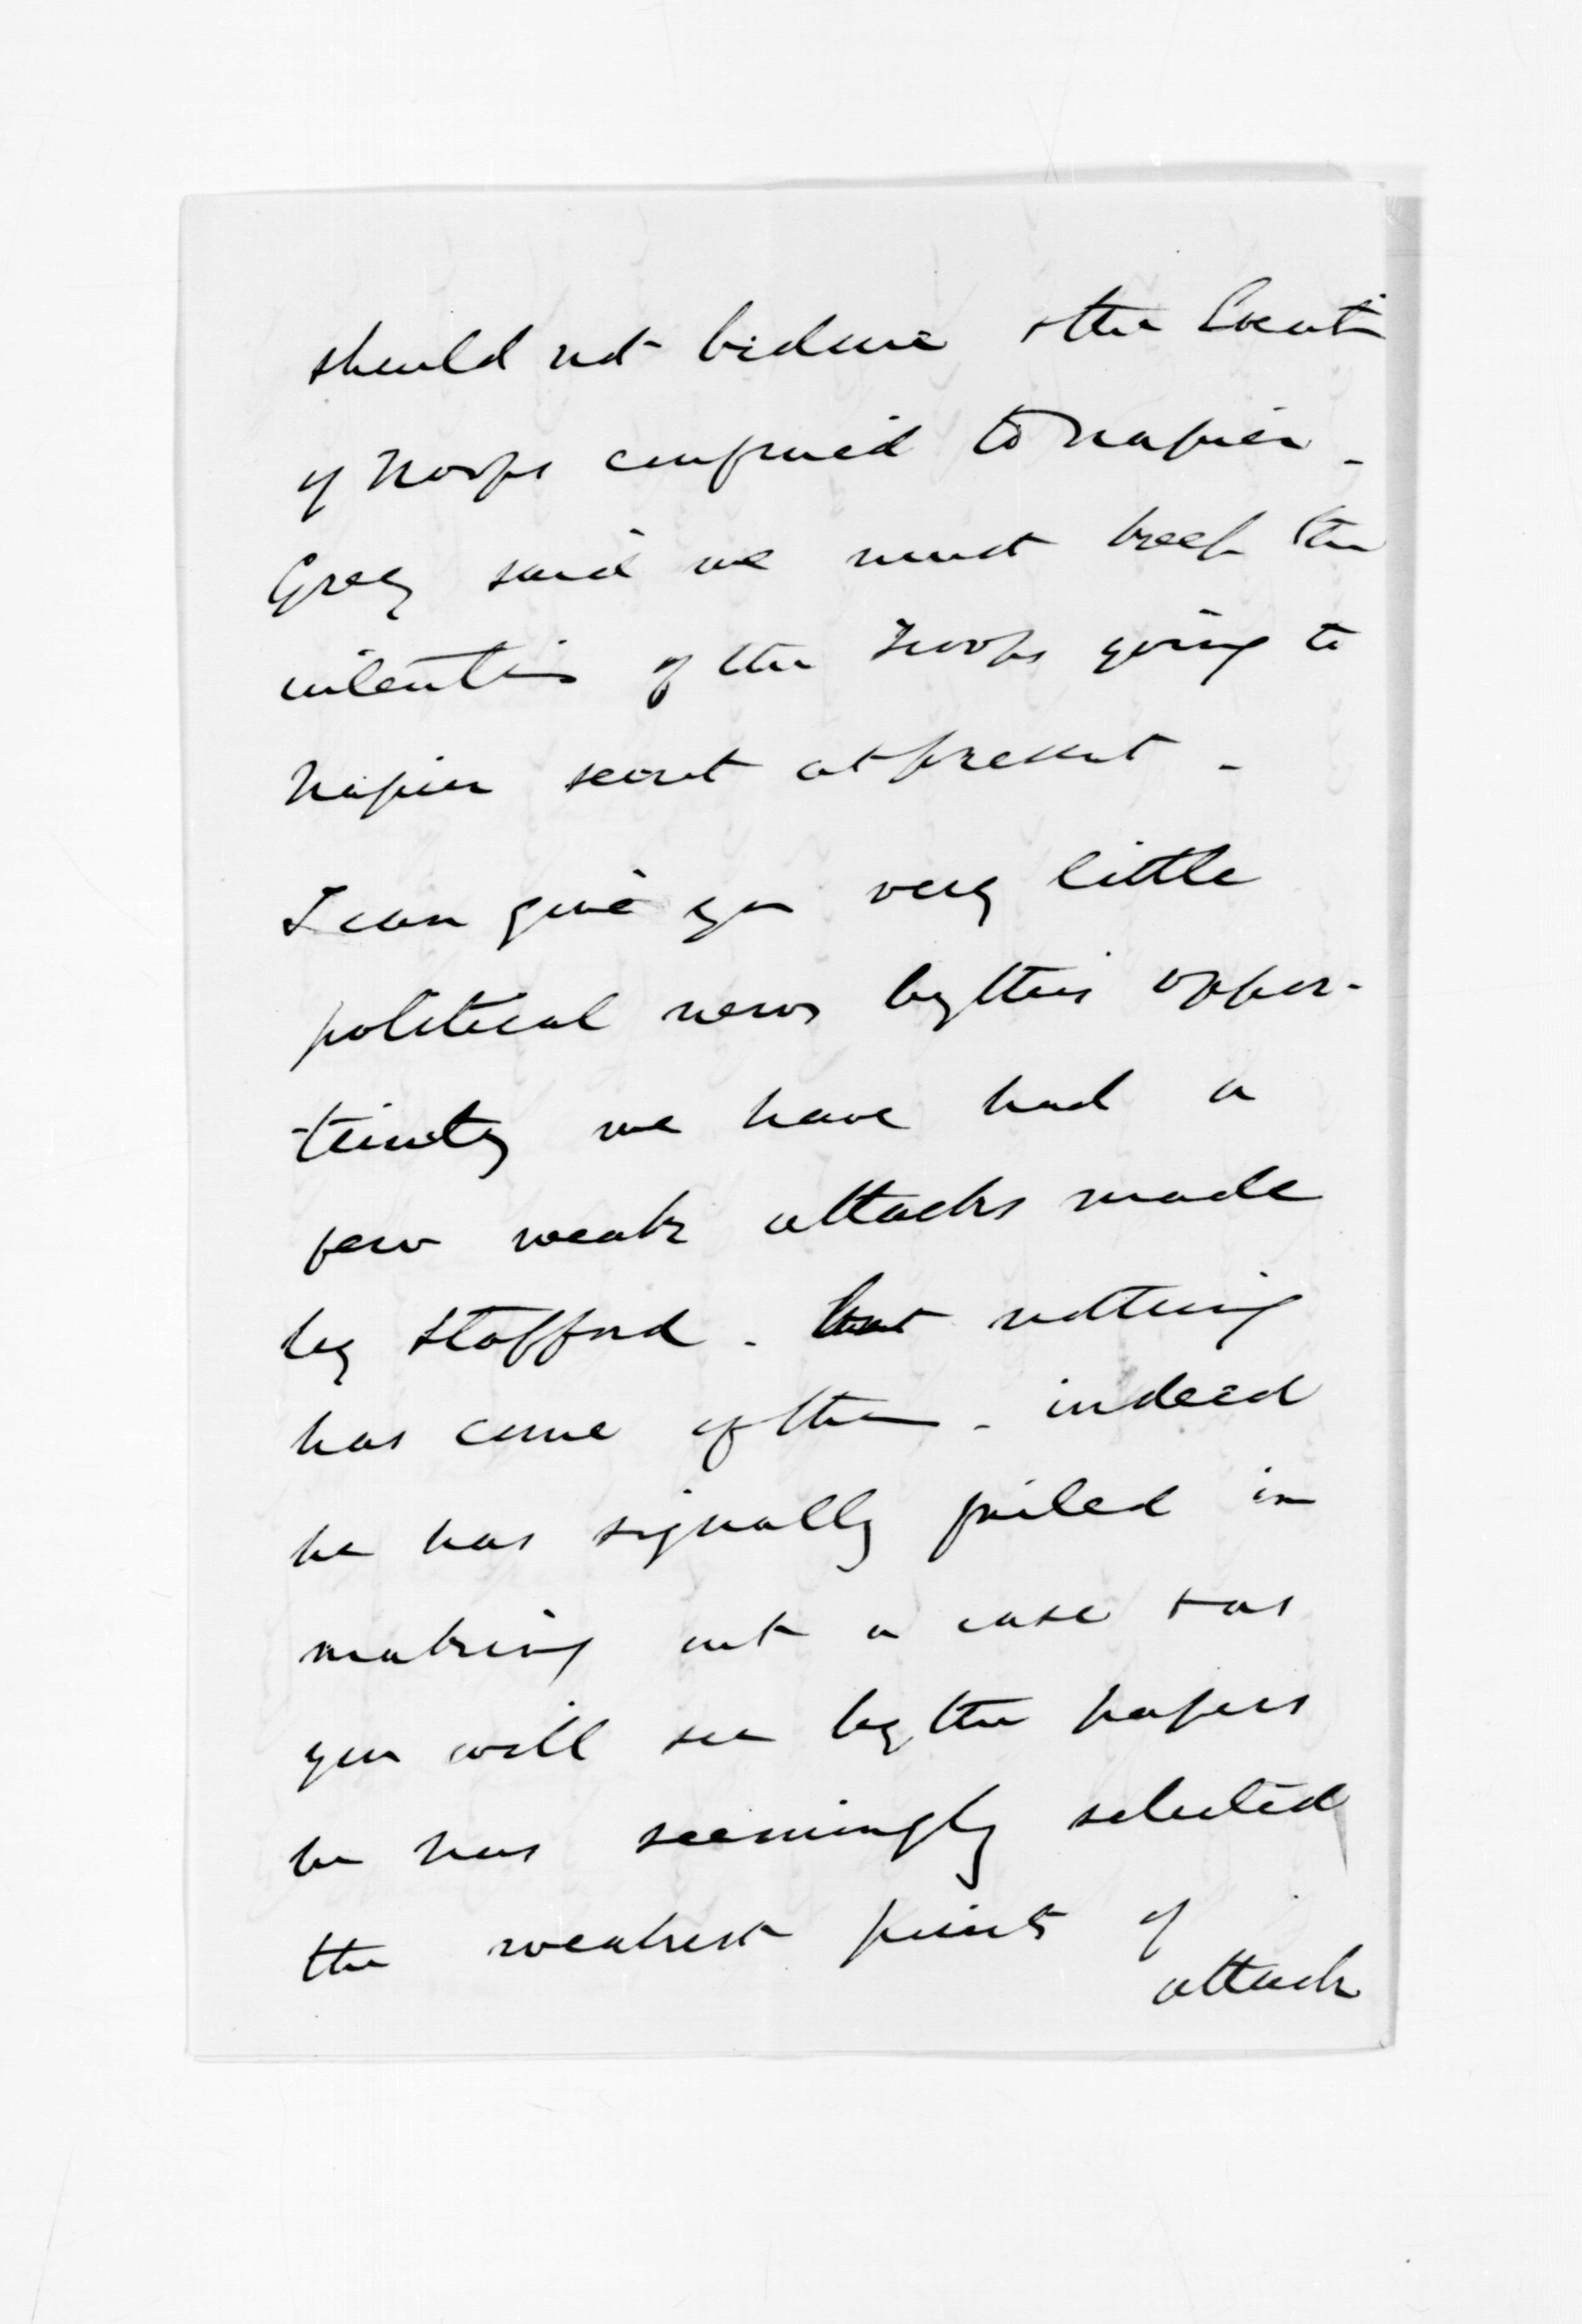 should not & the Location
of Troops confined to Napier -
Grey said we must keep the
intention of the Troops going to
Napier secret at present -
I can give you very little
political news by this oppor-
tunity we have had a
few weak attacks made
by Stafford - but nothing
has come of them - indeed
he has signally failed in
making out a case & as
you will see by the papers
he has seemingly selected
the weakest points of
attack